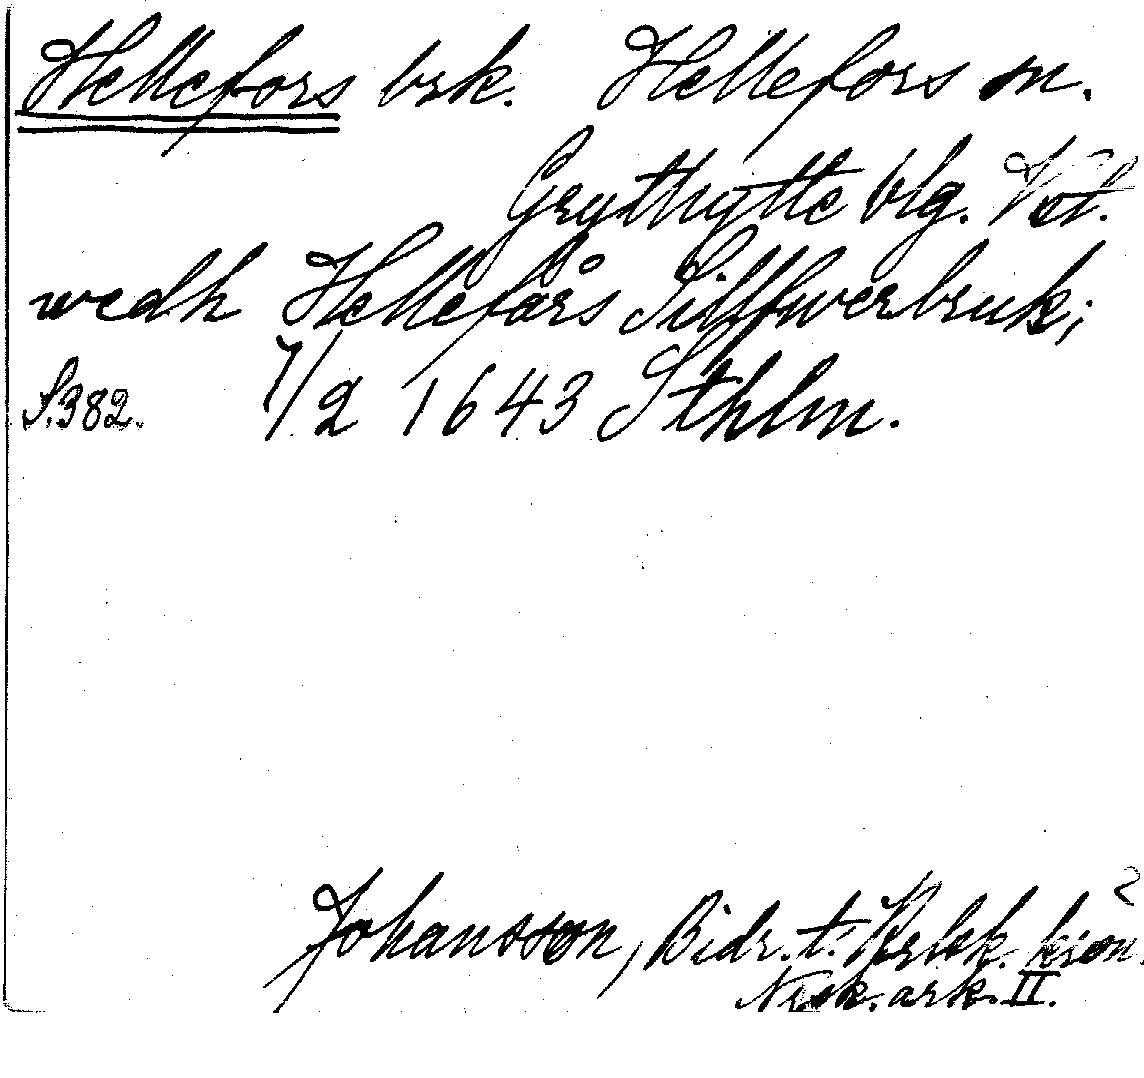 Hellefors brk. Hellefors sn.
Grythytte blg. Vstl.
wedh Hellefårs Sillfwerbruk;
S. 382. 7/2 1643 Sthlm.
Johansson, Bidr. t.
ark. II.